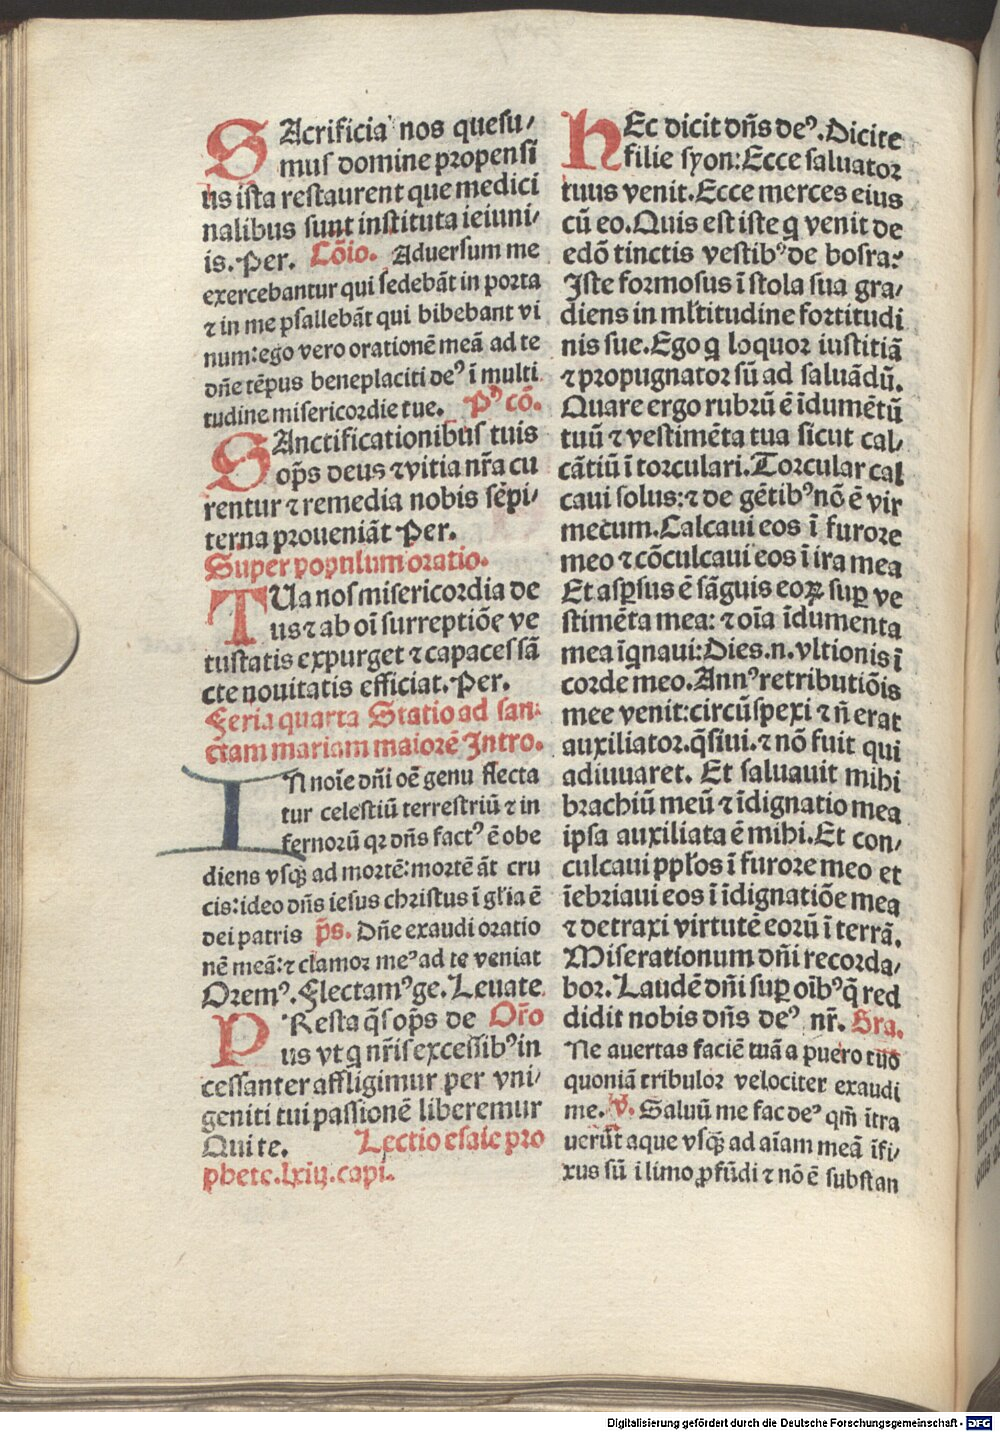 SAcrificia nos quesu/
mus domine propensi
us ista restaurent que medici
nalibus sunt instituta ieiuni/
is. Per. Cōio. Aduersum me
exercebantur qui sedebāt in porta
⁊ in me psallebāt qui bibebant vi
num: ego vero orationē meā ad te
dñe tēpus beneplaciti deꝰ ī multi
tudine misericordie tue. Pꝰ cō.
SAnctificationibus tuis
op̄s deus ⁊ vitia nr̄a cu
rentur ⁊ remedia nobis sēpi/
terna proueniāt Per.
Super popnlum oratio.
TUa nos misericordia de
us ⁊ ab oī surreptiōe ve
tustatis expurget ⁊ capaces sā
cte nouitatis efficiat. Per.
Feria quarta Statio ad san:
ctam mariam maiorē Intro.
IN noīe dñi oē genu flecta
tur celestiū terrestriū ⁊ in
fernorū qꝛ dñs factꝰ ē obe
diens vsqꝫ ad mortē: mortē āt cru
cis: ideo dñs iesus christus ī gl̄ia ē
dei patris p̄s. Dñe exaudi oratio
nē meā: ⁊ clamor meꝰ ad te veniat
Oremꝰ. Flectamꝰ ge. Leuate
PResta q̄s op̄s de Or̄o
us vt q nr̄is excessibꝰ in
cessanter affligimur per vni/
geniti tui passionē liberemur
Qui te. Lectio esaie pro
phete. lxiij. capi.
hEc dicit dñs deꝰ. Dicite
filie syon: Ecce saluator
tuus venit. Ecce merces eius
cū eo. Quis est iste q venit de
edō tinctis vestibꝰ de bosra?
Iste formosus ī stola sua gra/
diens in ml̄titudine fortitudi
nis sue. Ego q loquor iustitiā
⁊ propugnator sū ad saluādū.
Quare ergo rubrū ē īdumētū
tuū ⁊ vestimēta tua sicut cal/
cātiū ī torculari. Torcular cal
caui solus: ⁊ de gētibꝰ nō ē vir
mecum. Calcaui eos ī furore
meo ⁊ cōculcaui eos ī ira mea
Et asꝑsus ē sāguis eoꝝ suꝑ ve
stimēta mea: ⁊ oīa īdumenta
mea īqnaui: Dies .n. vltionis ī
corde meo. Annꝰ retributiōis
mee venit: circūspexi ⁊ ñ erat
auxiliator. q̄siui. ⁊ nō fuit qui
adiuuaret. Et saluauit mihi
brachiū meū ⁊ īdignatio mea
ipsa auxiliata ē mihi. Et con/
culcaui pp̄los ī furore meo et
īebriaui eos ī īdignatiōe mea
⁊ detraxi virtutē eorū ī terrā.
Miserationum dñi recorda/
bor. Laudē dñi suꝑ oībꝰ q̄ red
didit nobis dñs deꝰ nr̄. Gra.
Ne auertas faciē tuā a puero tuo
quoniā tribulor velociter exaudi
me. v̄. Saluū me fac deꝰ qm̄ ītra
uerūt aque vsqꝫ ad aīam meā īfi/
xus sū i limo ꝓfūdi ⁊ nō ē substan
Digitalisierung gefördert durch die Deutsche Forschungsgemeinschaft - DFG